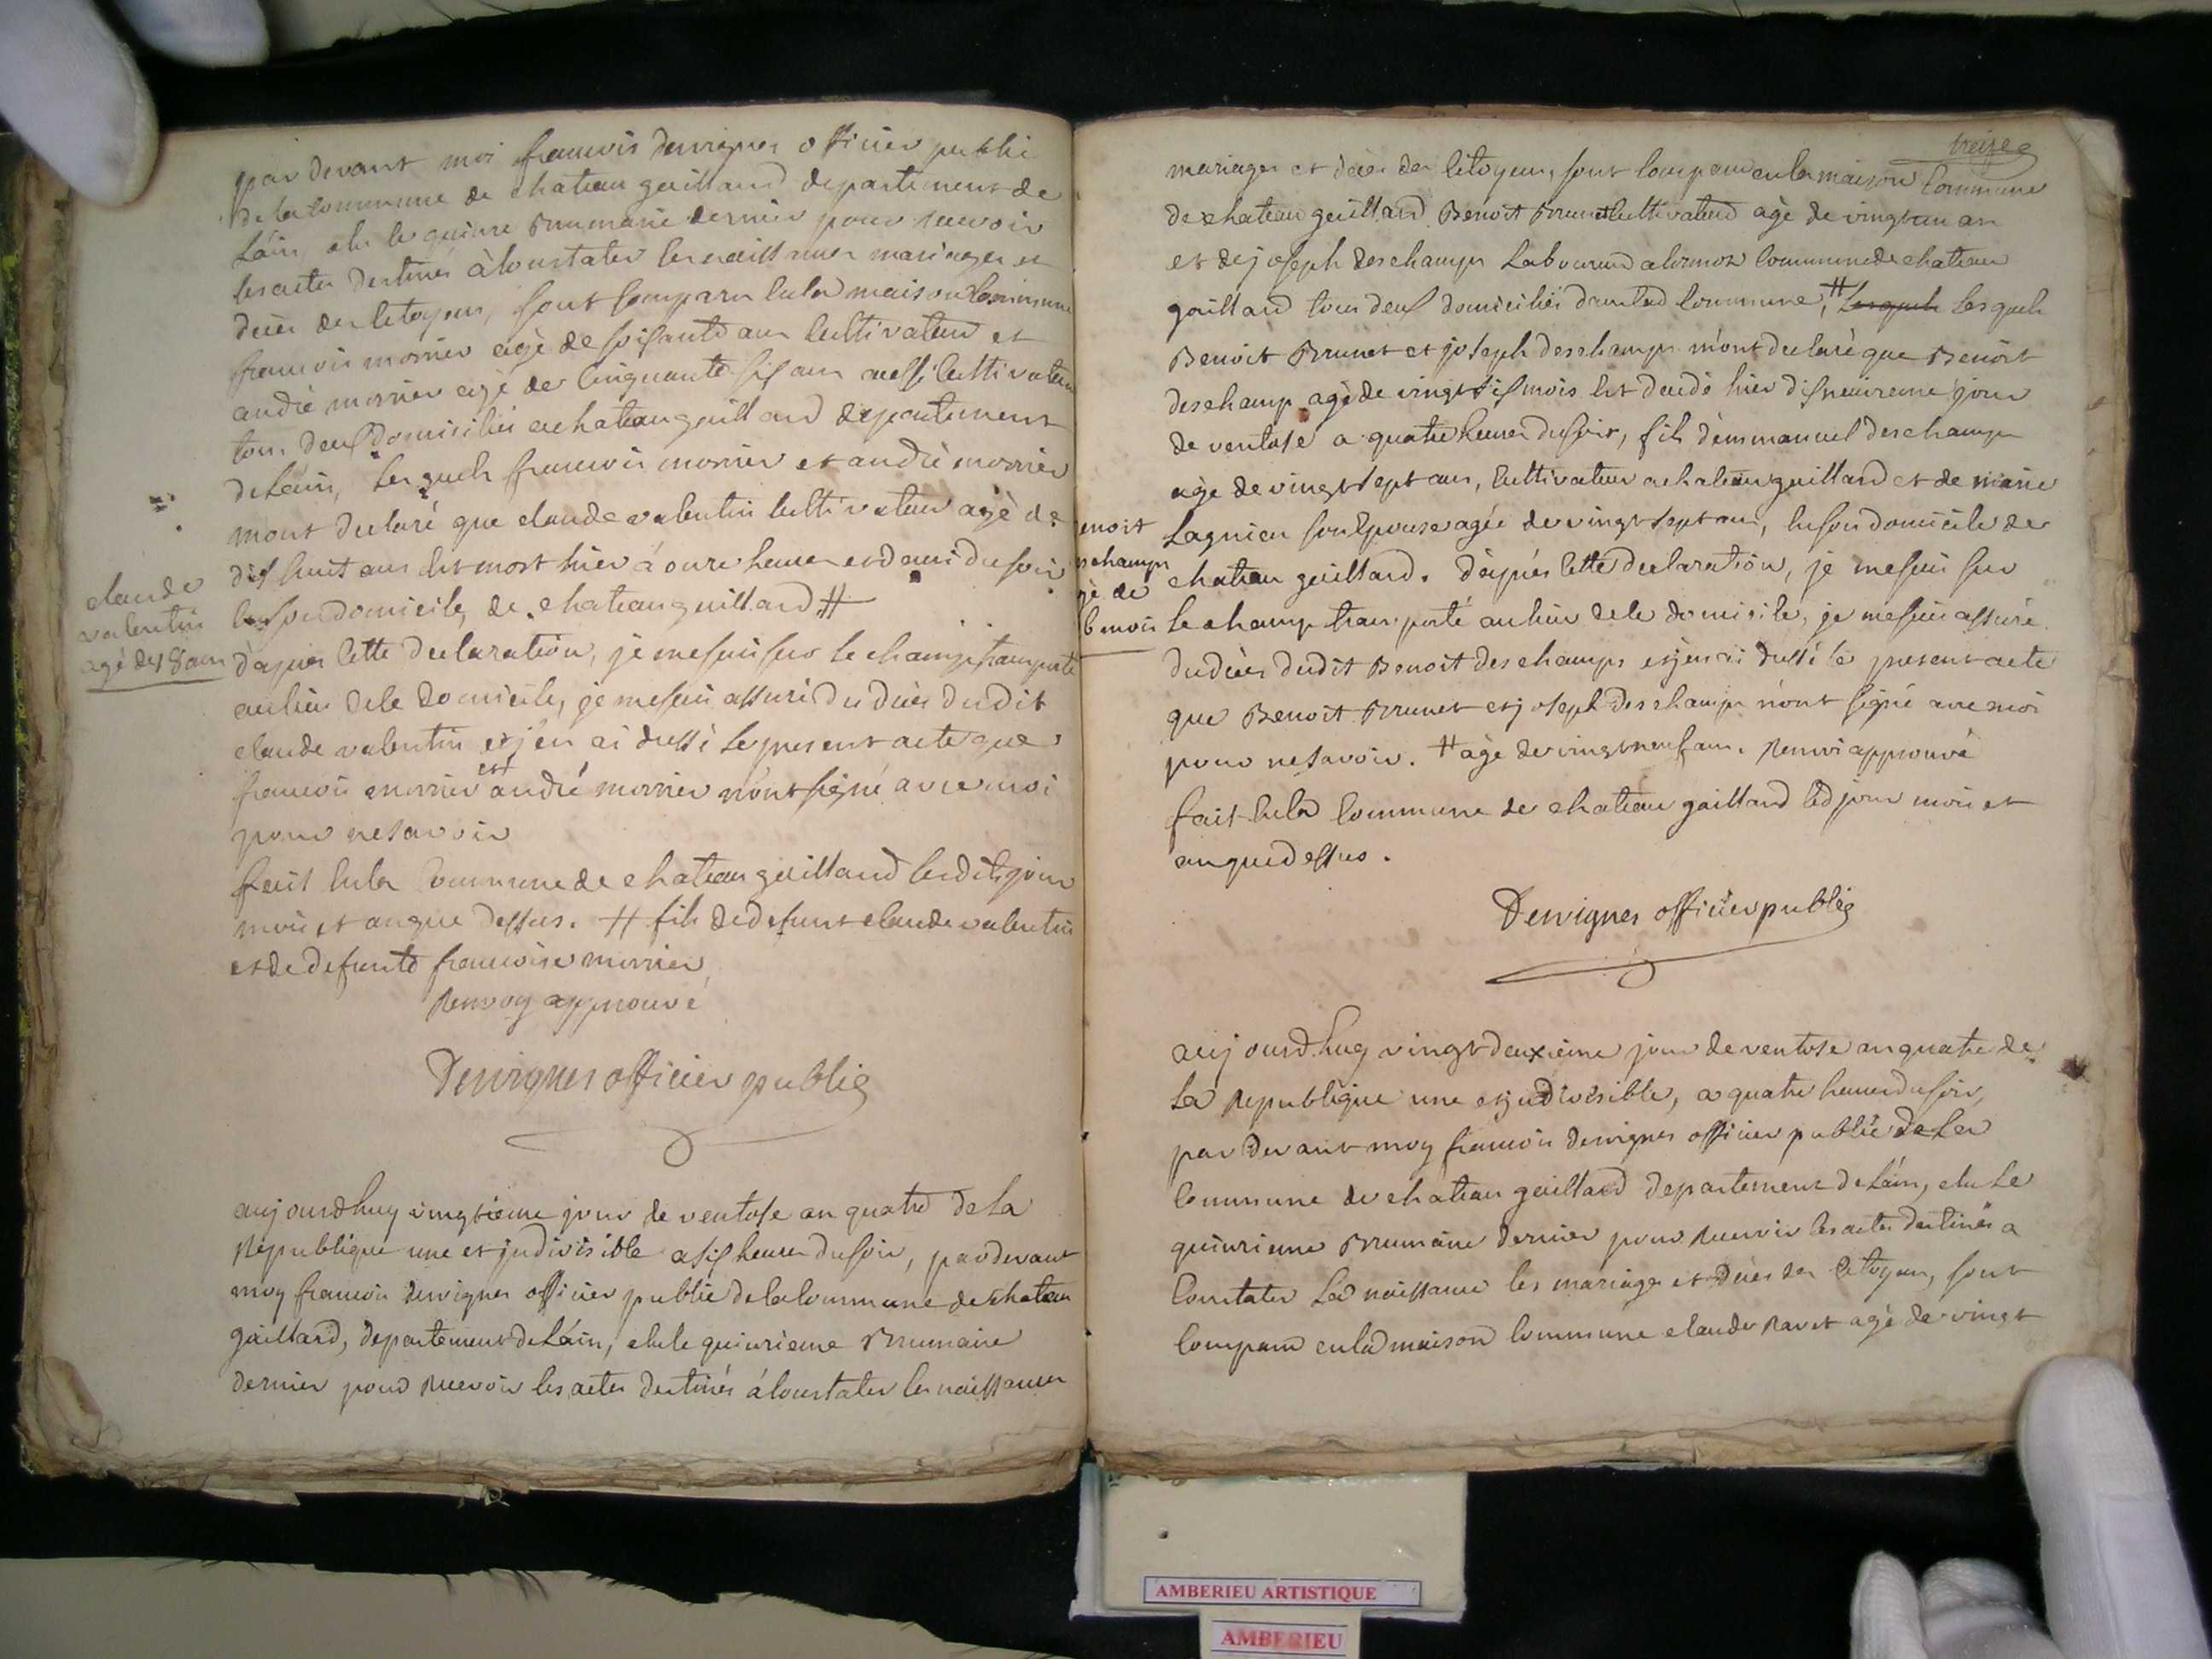 par devant moi francois dervignes officier public
de la commune de chateau gaillard departement de
Láin, elu le quinze Brumaire dernier pour recevoir
les actes destinés à constater les naissances mariages et
deces des citoyens, sont comparu en la maison commune
francois morrier agé de soisante ans cultivateur et
andré morrier agé de cinquante sis ans aussi cultivateur
tous deus domiciliés a chateau gaillard departement
de Lain, lesquels francois morrier et andré morrier
mont declaré que claude valentin cultivateur agè de
dis huit ans est mort hier á onze heures et demi du soir
en son domicile, de chateau gaillard #
claude
valentin
agé de 18 ans
d'apres cette declaration, je me suis sur le champ transporté
au lieu de le domicile, je me suis assuré du deces dudit
claude valentin et j'en ai dressé le present acte que
francois morrier et andré morrier n'ont signé avec moi
pour ne savoir
fait en la commune de chateau gaillard lesdits jour
mois et an que dessus. # fils de defunt claude valentin
et de defunte francoise morrier
Renvoy approuvé
Dervignes officier public
aujourdhuy vingtième jour de ventose an quatre de la
Republique une et indivisible a sis heures du soir, par devant
moy francois dervignes officier public de la commune de chateau
gaillard, departement de Láin, elu le quinzieme Brumaire
dernier pour recevoir les actes destinés á constater les naissances
treize
mariages et deces des citoyens, sont comparu en la maison commune
de chateau gaillard Benoit Brunet cultivateur agè de vingt un an
et de joseph deschamps Laboureur a cormoz commune de chateau
gaillard tous deus domiciliés dans lad commune, # Lesquels Lesquels
Benoit Brunet et joseph deschamps m'ont declaré que Benoit
deschamp agè de vingt sis mois est decedé hier disneuvieme jour
de ventose a quatre heures du soir, fils d'emmanuel deschamps
agè de vingt sept ans, cultivateur a chateau gaillard et de marie
Lagnieu son epouse agée de vingt sept ans, en son domicile de
enoit
schamps
gè de
6 mois
chateau gaillard. d'aprés cette declaration, je me suis sur
le champ transporté au lieu de le domicile, je me suis assuré
du deces dudit Benoit deschamps et j'en ai dressé le present acte
que Benoit Brunet et joseph deschamps n'ont signé avec moi
pour ne savoir. # agè de vingt neuf ans. Renvoi approuvé
fait en la commune de chateau gaillard led jour mois et
an que dessus.
Dervignes officier public
aujourdhuy vingt deuxième jour de ventose an quatre de
La Republique une et indivisible, a quatre heures du soir,
par devant moy francois dervignes officier public de la
commune de chateau gaillard departement de Láin, elu le
quinzieme Brumaire dernier pour recevoir les actes destinés a
constater La naissance les mariages et deces des citoyens, sont
comparu en la maison commune claude Ravet agè de vingt
AMBERIEU ARTISTIQUE
AMBERIEU